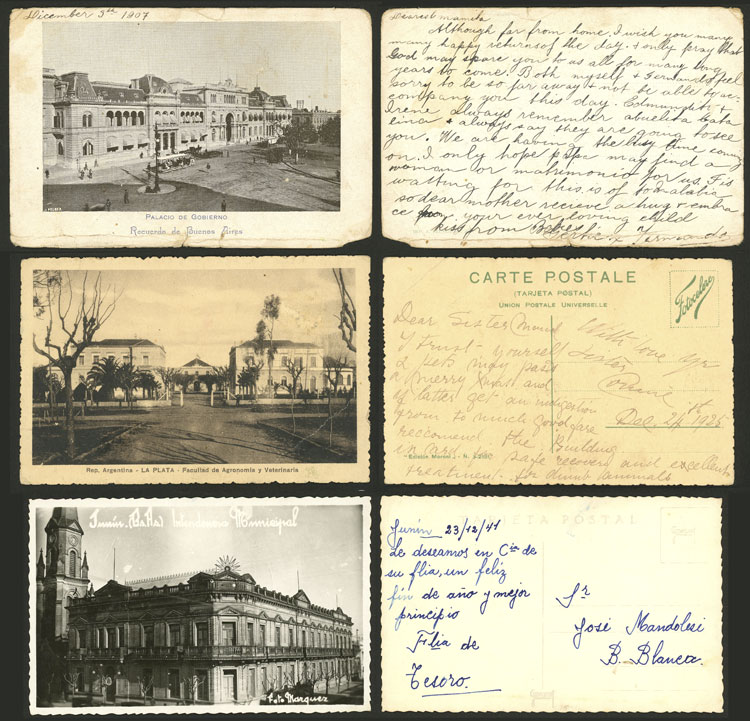 December 3rd 1907
PALACIO DE GOBIERNO
Recuerdo de Buenos Aires
Dearest mamita
Although far from home, I wish you many
many happy returns of the day. & only pray that
God may spare you to us all for many long
years to come. Both myself & Fernando feel
sorry to be so far away & not be able to ac-
company you this day.
Irene always remember abuelita Cata
lina & always say they are going to see
you. We are having the busy time coming
on. I only hope papa may find a
woman or matrimonio for us. F is
waiting for this.
so dear mother recieve a hug & embra
ce from your ever loving child
kiss from
CARTE POSTALE
(TARJETA POSTAL)
UNION POSTALE UNIVERSELLE
Fotocelere
Dear Sister Maud
I trust yourself
& Kets may pass
a merry Xmas and
if latter get an indigestion
from to much good fare
reccomend the Building
in
safe recovery and excellent
treatment for dumb animals
With love yr
Dec. 21st 1925
Rep. Argentina - LA PLATA - Facultad de Agronomia y Veterinaria
Junín. (Ba.As) Intendencia Municipal
Foto Marquez
TARJETA POSTAL
Junín 23/12/41
Le deseamos en Cia de
su flia, un feliz
fin de año y mejor
principio
Flia de
Tesoro.
Sr
José Mandolesi
B. Blanca.